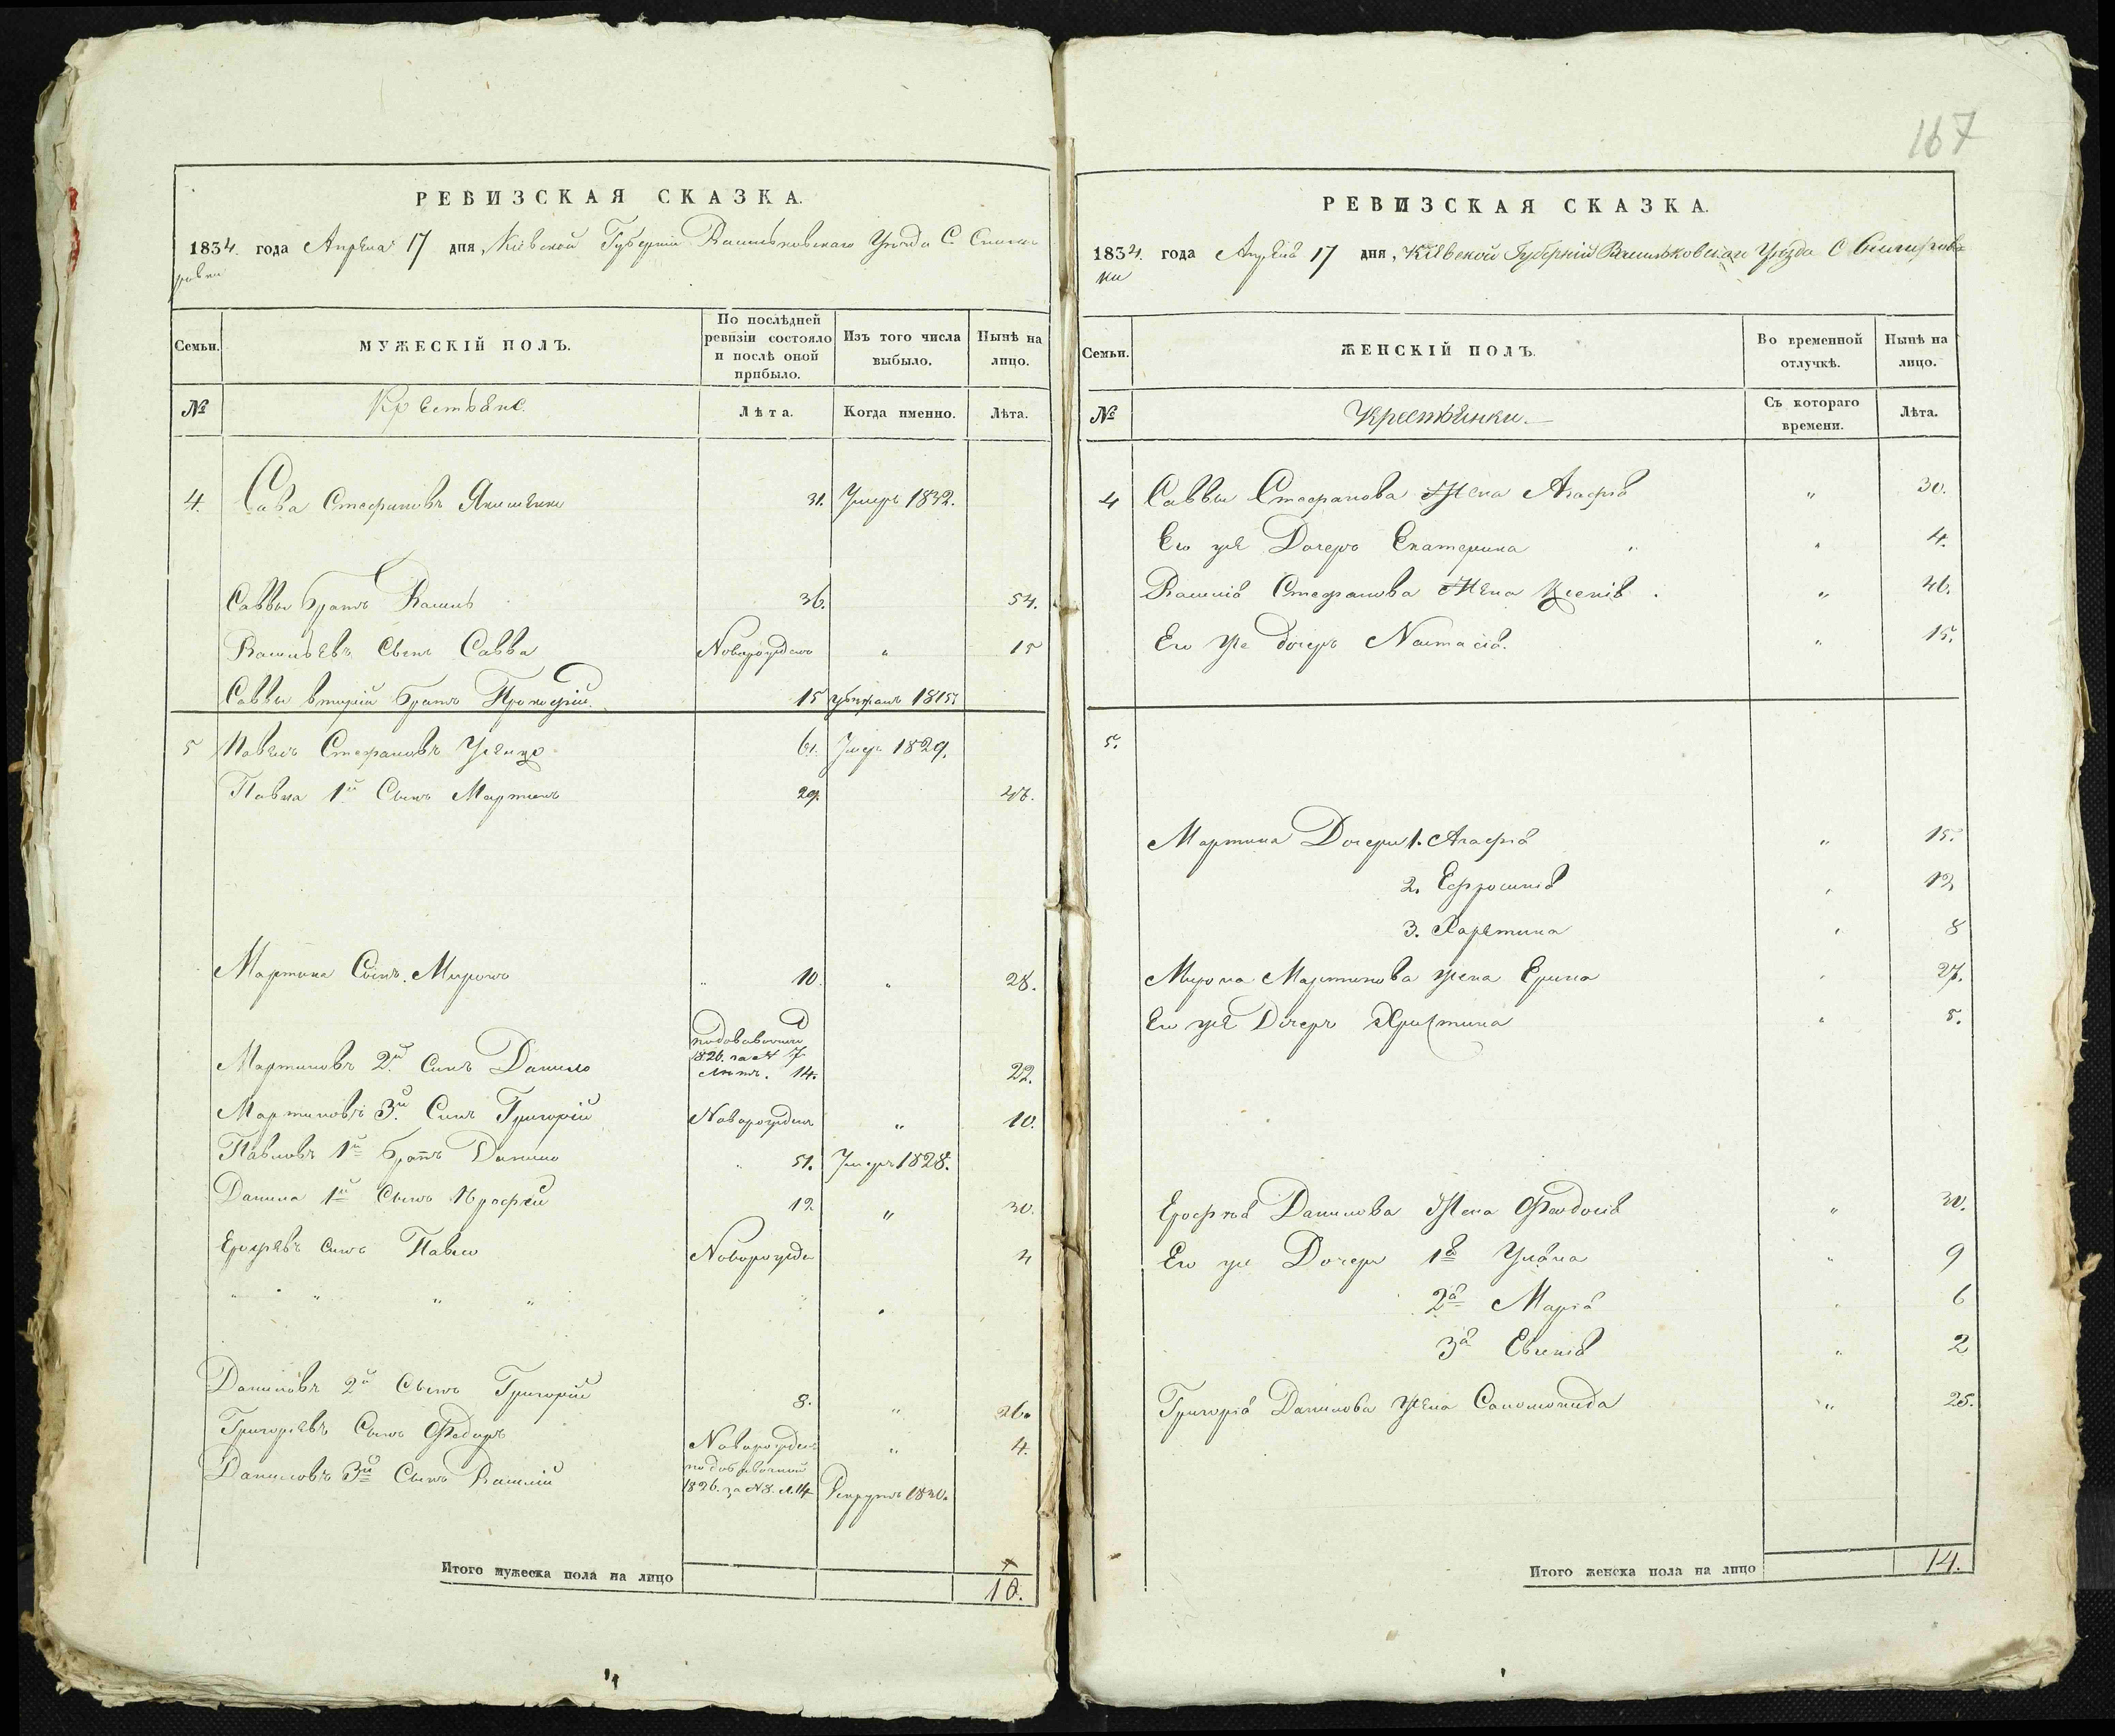 167
РЕВИЗСКАЯ СКАЗКА.
1834. года Апреля 17 дня, Кіевской Губерніи Васильковскаго Уезда С.
ровки
Семьи.
МУЖЕСКІЙ ПОЛЪ.
По послѣдней ревизіи состояло и послѣ оной прибыло.
Изъ того числа выбыло.
Нынѣ на лицо.
№
Крестьяне.
Лѣта.
Когда именно.
Лѣта.
4. Сава Стефановъ 31. Умеръ 1832.
Саввы братъ Василь 36. 54.
Васильевъ Сынъ Савва Новорожденъ " 15
Саввы вторій братъ Прокофій. 15 1815
5 Павелъ Стефановъ 61. Умеръ 1829.
Павла 1й Сынъ Мартинъ 29. 47.
Мартина Сынъ Миронъ " 10. " 28.
по добавочной
1826. за № 7
Мартиновъ 2й Синъ Данило лѣтъ. 14. 22.
Мартиновъ 3й Синъ Григорій Новорожденъ " 10.
Павловъ 1й братъ Данило " 51. Умеръ 1828.
Данила 1й Сынъ Ерофей 12 " 30.
Ерофеевъ Синъ Павло Новорожде 4
" " " "
Даниловъ 2й Сынъ Григорій 8. " 26.
Григорьевъ Сынъ Федоръ Новорожденъ " 4.
по добавочной
Даниловъ 3й Сынъ Василій 1826. за № 8. л. 14 Рекрутъ 1830.
Итого мужеска пола на лицо 10.
РЕВИЗСКАЯ СКАЗКА.
1834. года Апреля 17 дня, Кіевской Губерніи Васильковскаго Уѣзда С
ки
Семьи.
ЖЕНСКІЙ ПОЛЪ.
Во временной отлучкѣ.
Нынѣ на лицо.
№
Крестьянки.
Съ котораго времени.
Лѣта.
4 Саввы Стефанова Жена Агафія " 30.
Его же Дочеръ Екатерина " 4.
Василія Стефанова Жена Ксенія. " 46.
Его же дочеръ Настасія. " 15.
5.
Мартина Дочери 1. Агафія " 15.
2. Ефросинія " 12.
3. Харетина " 8
Мирона Мартинова жена Ерина " 27.
Его же Дочеръ Христина " 5.
Ерофея Данилова Жена Феодосія " 30.
Его же Дочери 1я Уляна " 9
2я Марія " 6
3я Евгенія " 2
Григорія Данилова Жена Соломонида " 25.
Итого женска пола на лицо 14.